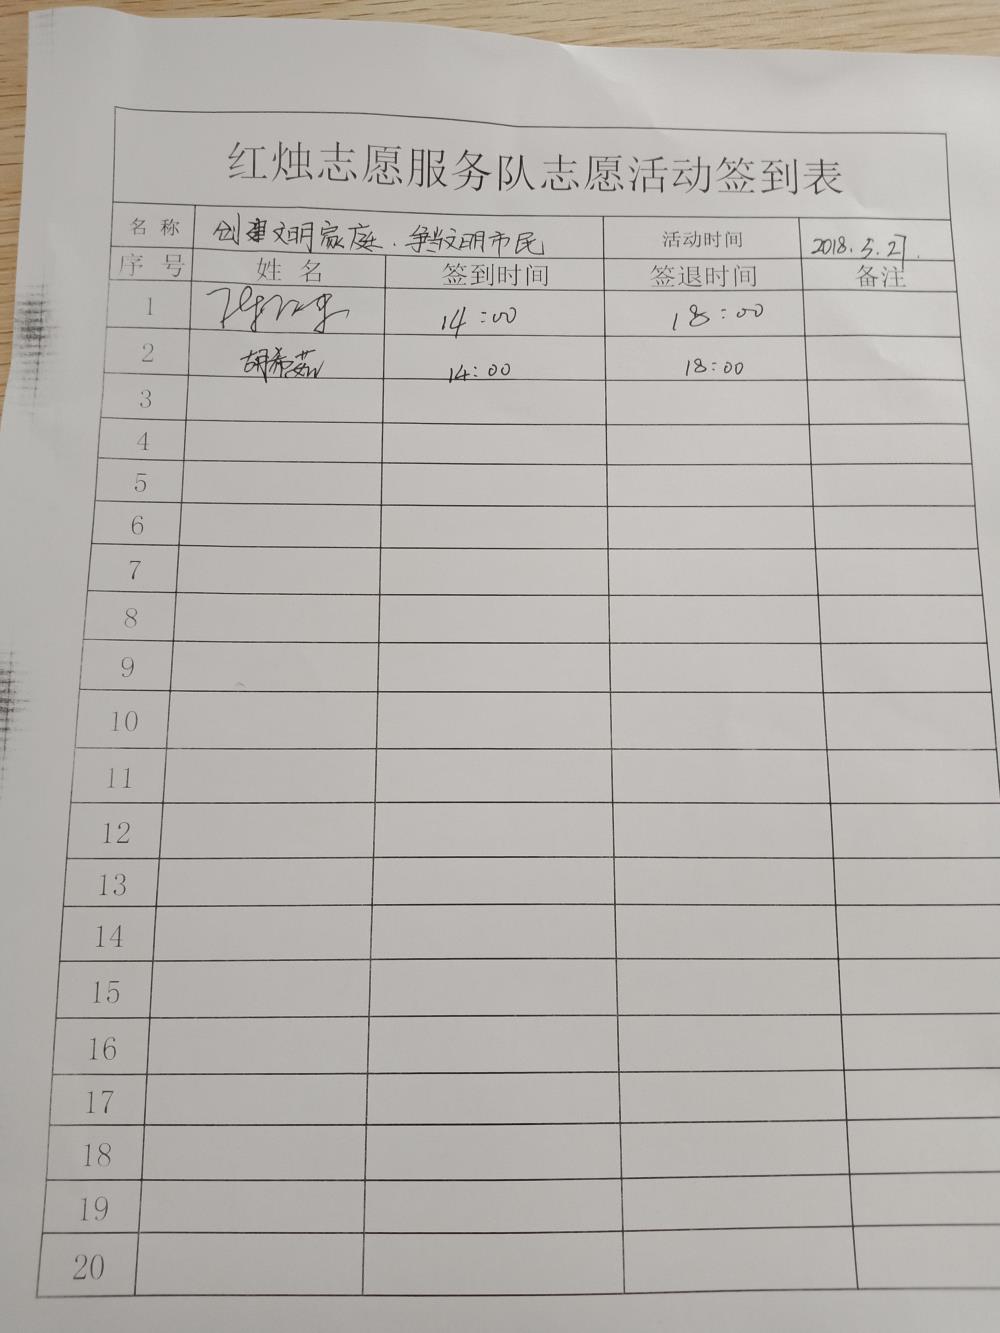 红烛志愿服务队志愿活动签到表
名 称 创建文明家庭.争当文明市民 活动时间 2018.5.27.
序 号 姓 名 签到时间 签退时间 备注
1 14:00 18:00
2 胡希茹 14:00 18:00
3
4
5
6
7
8
9
10
11
12
13
14
15
16
17
18
19
20